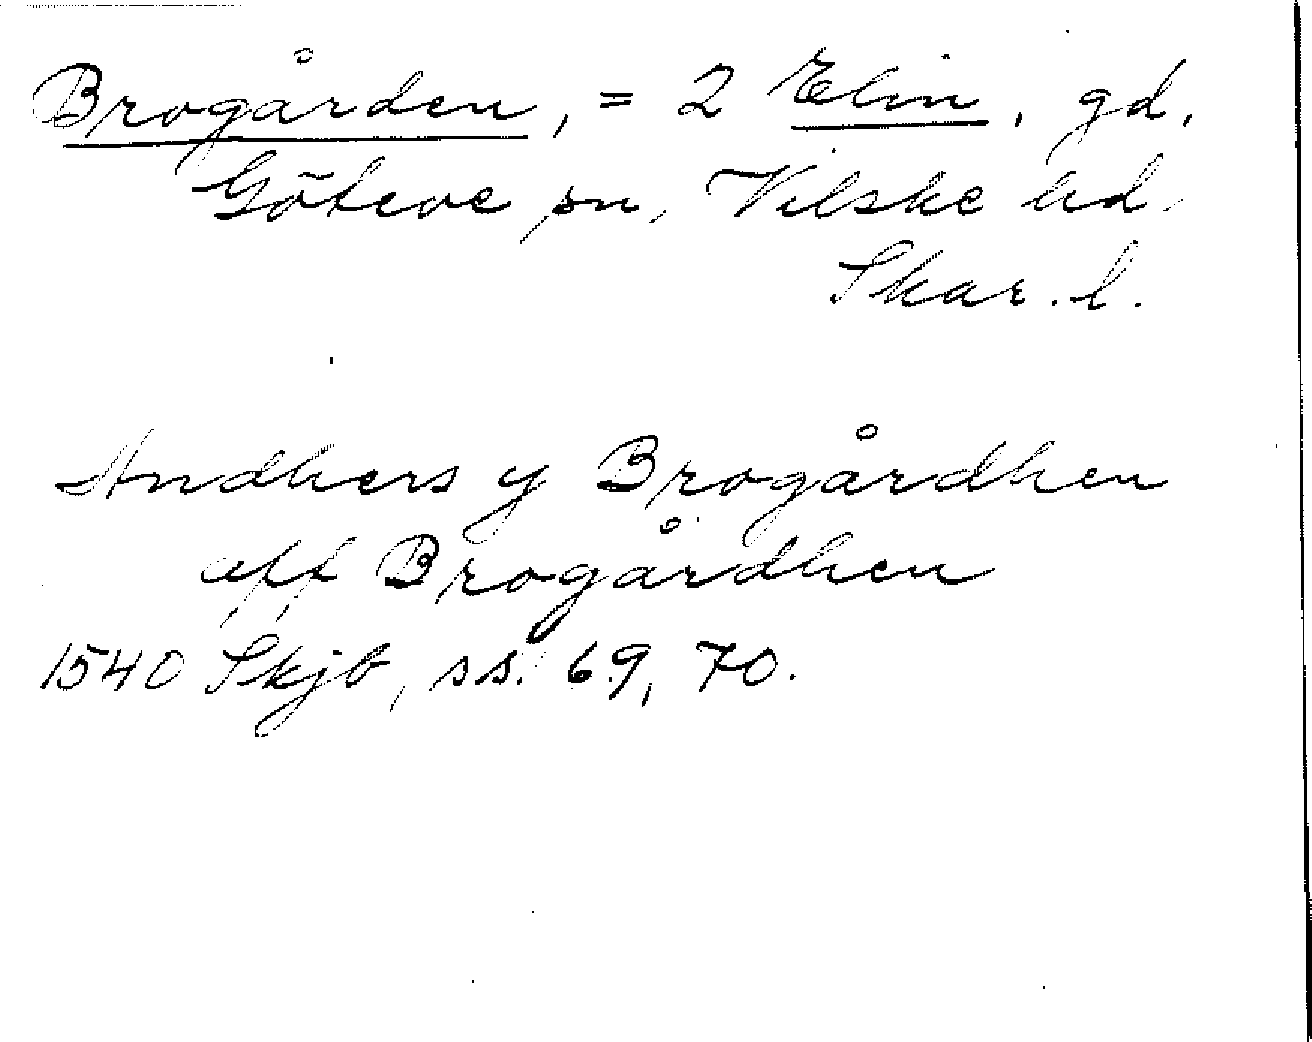 Brogården, = 2 Elin, gd,
Göteve sn, Vilske hd,
Skar. l.
Andhers y Brogårdhen
aff Brogårdhen
1540 Skjb, ss. 69, 70.